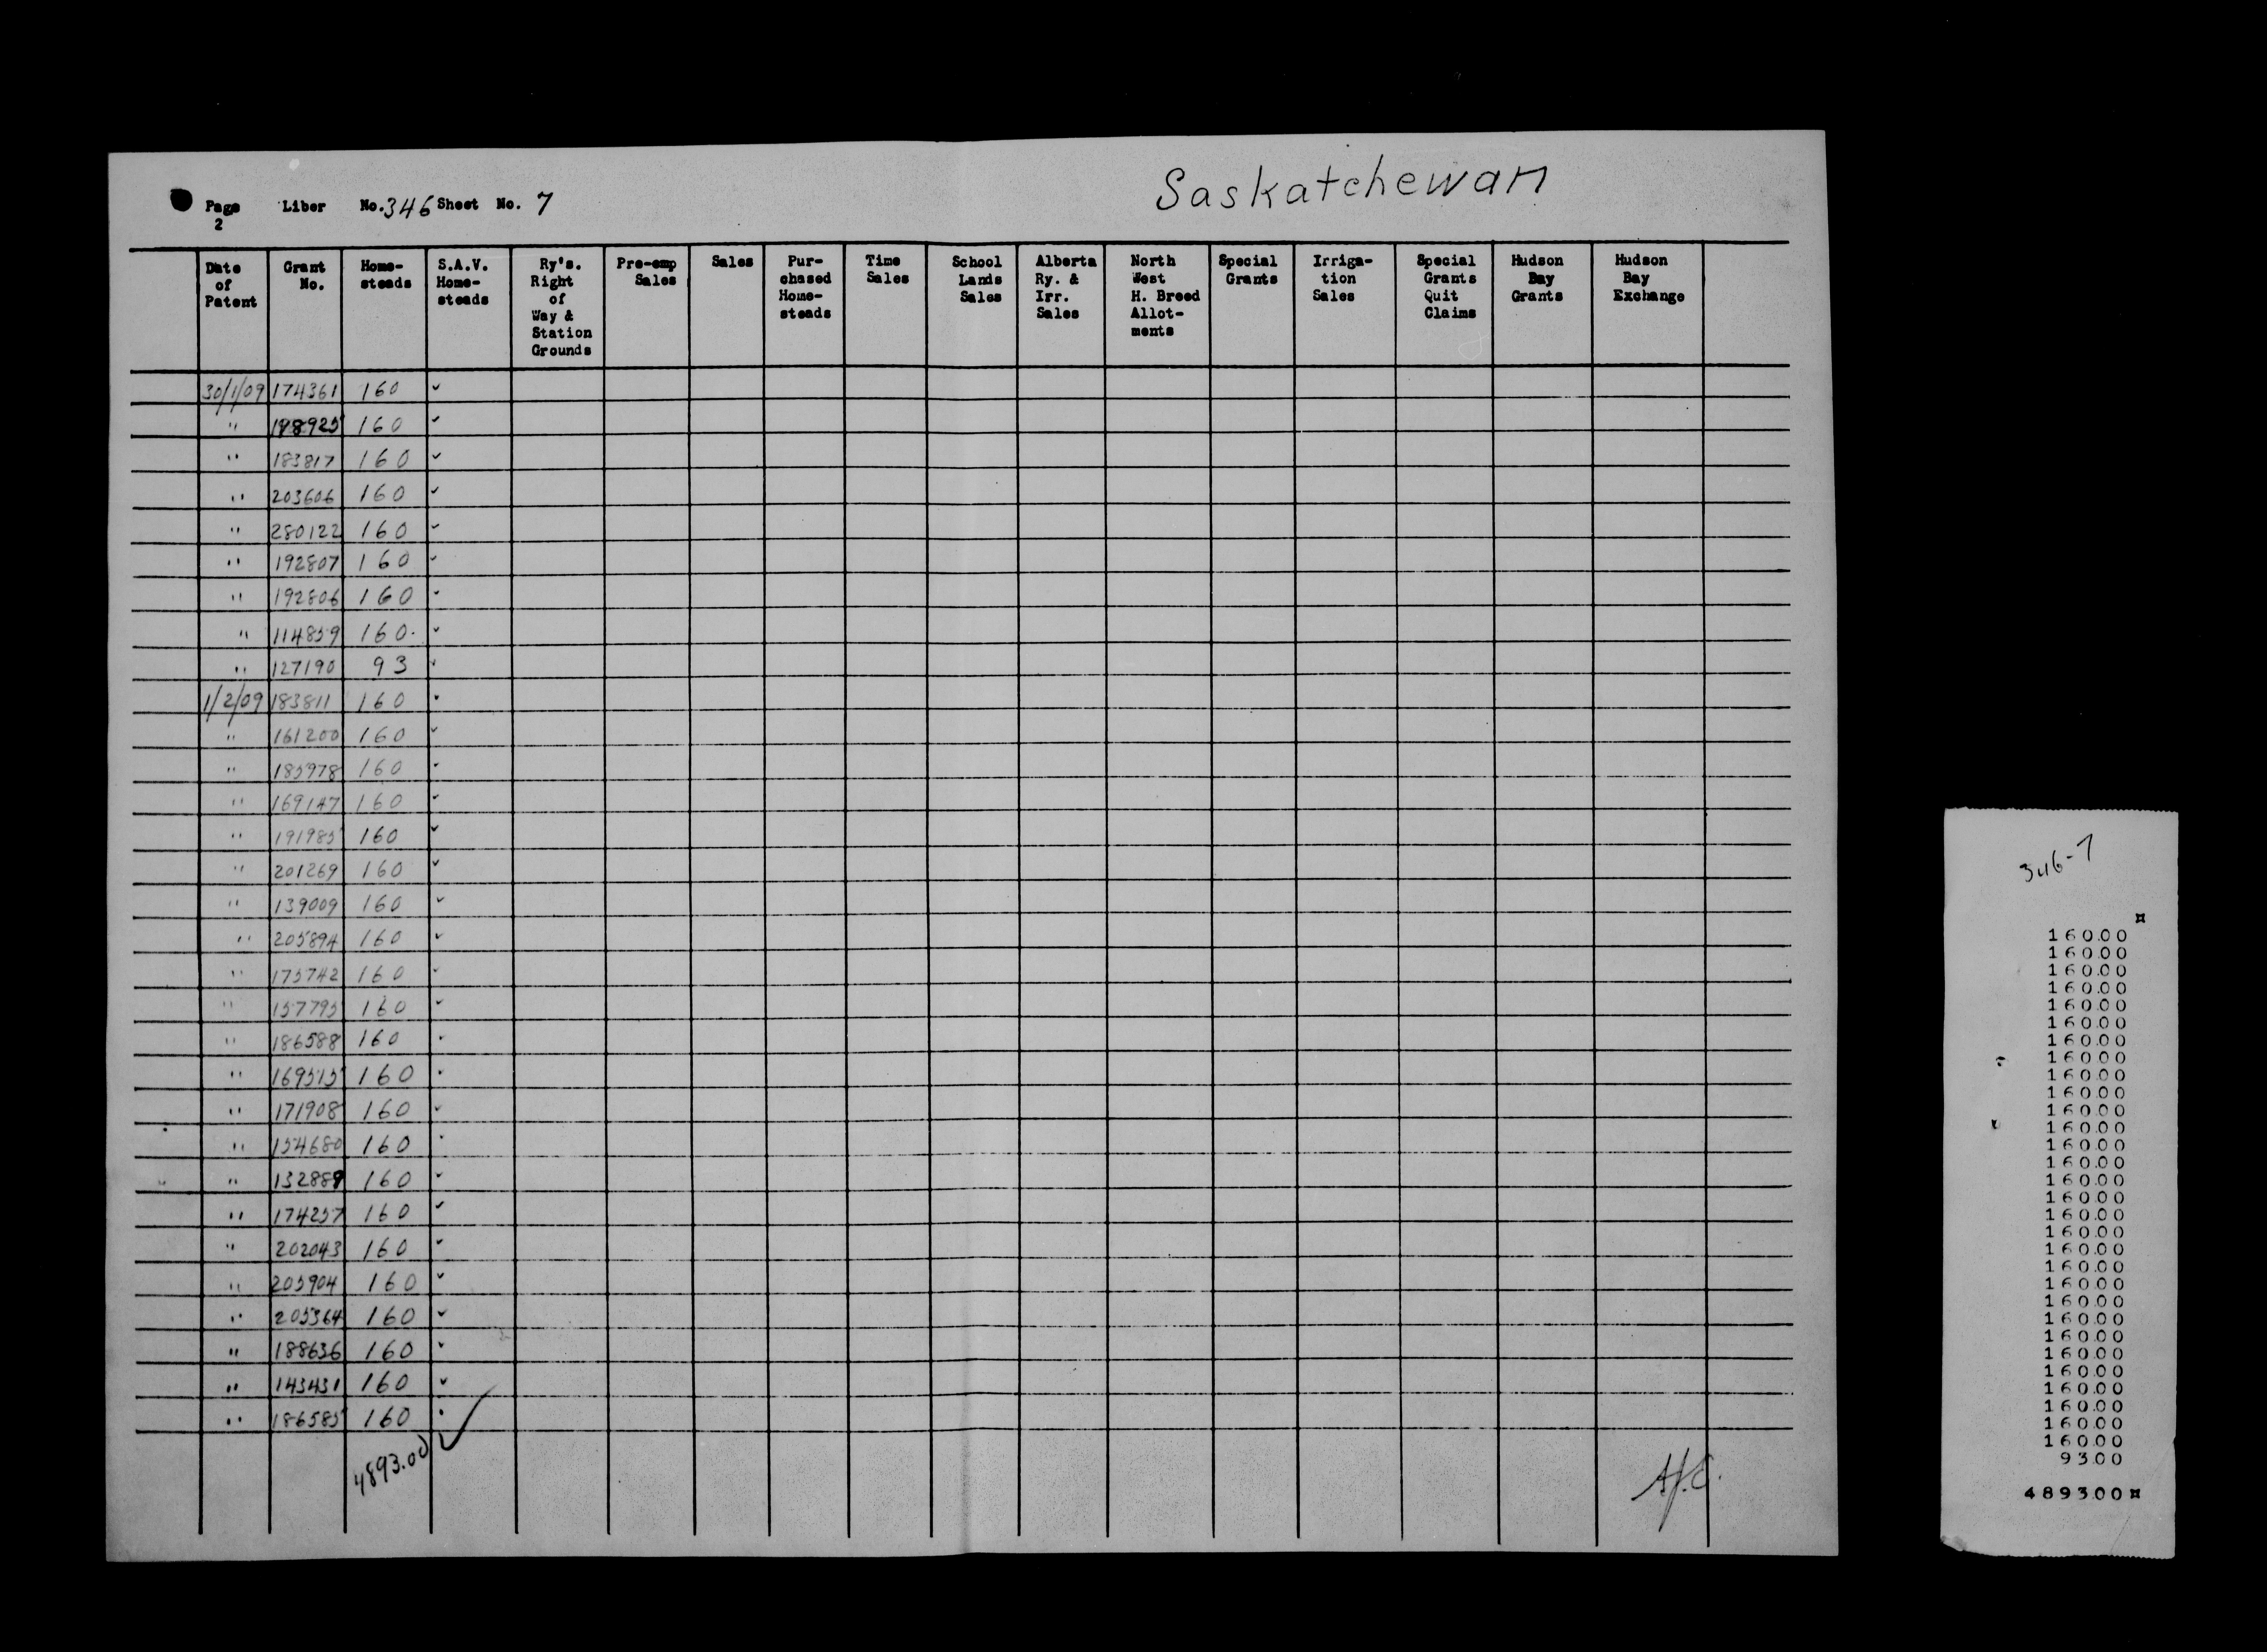 Saskatchewan
Page 2 Liber No. 346 Sheet No. 7
Date of Patent | Grant No. | Home-steads | S.A.V. Home-steads | Ry's. Right of Way & Station Grounds | Pre-emp Sales | Sales | Pur-chased Home-steads | Time Sales | School Lands Sales | Alberta Ry. & Irr. Sales | North West H. Breed Allot-ments | Special Grants | Irriga-tion Sales | Special Grants Quit Claims | Hudson Bay Grants | Hudson Bay Exchange
30/1/09 174361 160 ✓
" 198925 160 ✓
" 183817 160 ✓
" 203606 160 ✓
" 280122 160 ✓
" 192807 160 ✓
" 192806 160 ✓
" 114859 160. ✓
" 127190 93 ✓
1/2/09 183811 160 ✓
" 161200 160 ✓
" 185978 160 ✓
" 169147 160 ✓
" 191985 160 ✓
" 201269 160 ✓
" 139009 160 ✓
" 205894 160 ✓
" 175742 160 ✓
" 157795 160 ✓
" 186588 160 ✓
" 169515 160 ✓
" 171908 160 ✓
" 154680 160 ✓
" 132889 160 ✓
" 174257 160 ✓
" 202043 160 ✓
" 205904 160 ✓
" 205364 160 ✓
" 188636 160 ✓
" 143431 160 ✓
" 186585 160 ✓
4893.00 ✓
346-7
¤
160.00
160.00
160.00
160.00
160.00
160.00
160.00
160.00
160.00
160.00
160.00
160.00
160.00
160.00
160.00
160.00
160.00
160.00
160.00
160.00
160.00
160.00
160.00
160.00
160.00
160.00
160.00
160.00
160.00
160.00
93.00
4893.00¤